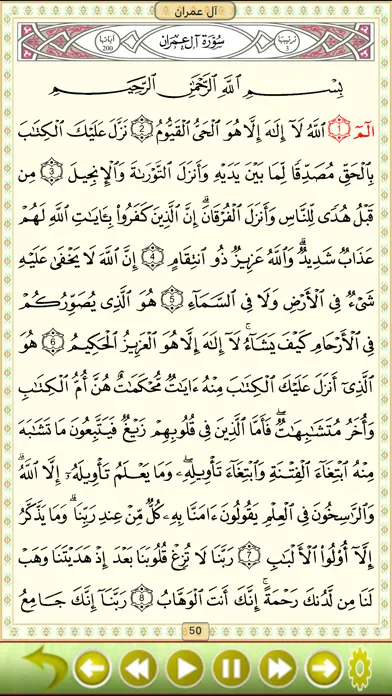 آل عمران
ترتيبها 3
سُورَةُ آلِ عِمْرَانَ
آياتها 200
بِسْمِ اللَّهِ الرَّحْمَٰنِ الرَّحِيمِ
الٓمٓ ۝١ ٱللَّهُ لَآ إِلَٰهَ إِلَّا هُوَ ٱلْحَىُّ ٱلْقَيُّومُ ۝٢ نَزَّلَ عَلَيْكَ ٱلْكِتَٰبَ
بِٱلْحَقِّ مُصَدِّقًا لِّمَا بَيْنَ يَدَيْهِ وَأَنزَلَ ٱلتَّوْرَىٰةَ وَٱلْإِنجِيلَ ۝٣ مِن
قَبْلُ هُدًى لِّلنَّاسِ وَأَنزَلَ ٱلْفُرْقَانَ ۗ إِنَّ ٱلَّذِينَ كَفَرُوا۟ بِـَٔايَٰتِ ٱللَّهِ لَهُمْ
عَذَابٌ شَدِيدٌ ۗ وَٱللَّهُ عَزِيزٌ ذُو ٱنتِقَامٍ ۝٤ إِنَّ ٱللَّهَ لَا يَخْفَىٰ عَلَيْهِ
شَىْءٌ فِى ٱلْأَرْضِ وَلَا فِى ٱلسَّمَآءِ ۝٥ هُوَ ٱلَّذِى يُصَوِّرُكُمْ
فِى ٱلْأَرْحَامِ كَيْفَ يَشَآءُ ۚ لَآ إِلَٰهَ إِلَّا هُوَ ٱلْعَزِيزُ ٱلْحَكِيمُ ۝٦ هُوَ
ٱلَّذِىٓ أَنزَلَ عَلَيْكَ ٱلْكِتَٰبَ مِنْهُ ءَايَٰتٌ مُّحْكَمَٰتٌ هُنَّ أُمُّ ٱلْكِتَٰبِ
وَأُخَرُ مُتَشَٰبِهَٰتٌ ۖ فَأَمَّا ٱلَّذِينَ فِى قُلُوبِهِمْ زَيْغٌ فَيَتَّبِعُونَ مَا تَشَٰبَهَ
مِنْهُ ٱبْتِغَآءَ ٱلْفِتْنَةِ وَٱبْتِغَآءَ تَأْوِيلِهِۦ ۗ وَمَا يَعْلَمُ تَأْوِيلَهُۥٓ إِلَّا ٱللَّهُ ۗ
وَٱلرَّٰسِخُونَ فِى ٱلْعِلْمِ يَقُولُونَ ءَامَنَّا بِهِۦ كُلٌّ مِّنْ عِندِ رَبِّنَا ۗ وَمَا يَذَّكَّرُ
إِلَّآ أُو۟لُوا۟ ٱلْأَلْبَٰبِ ۝٧ رَبَّنَا لَا تُزِغْ قُلُوبَنَا بَعْدَ إِذْ هَدَيْتَنَا وَهَبْ
لَنَا مِن لَّدُنكَ رَحْمَةً ۚ إِنَّكَ أَنتَ ٱلْوَهَّابُ ۝٨ رَبَّنَآ إِنَّكَ جَامِعُ
50